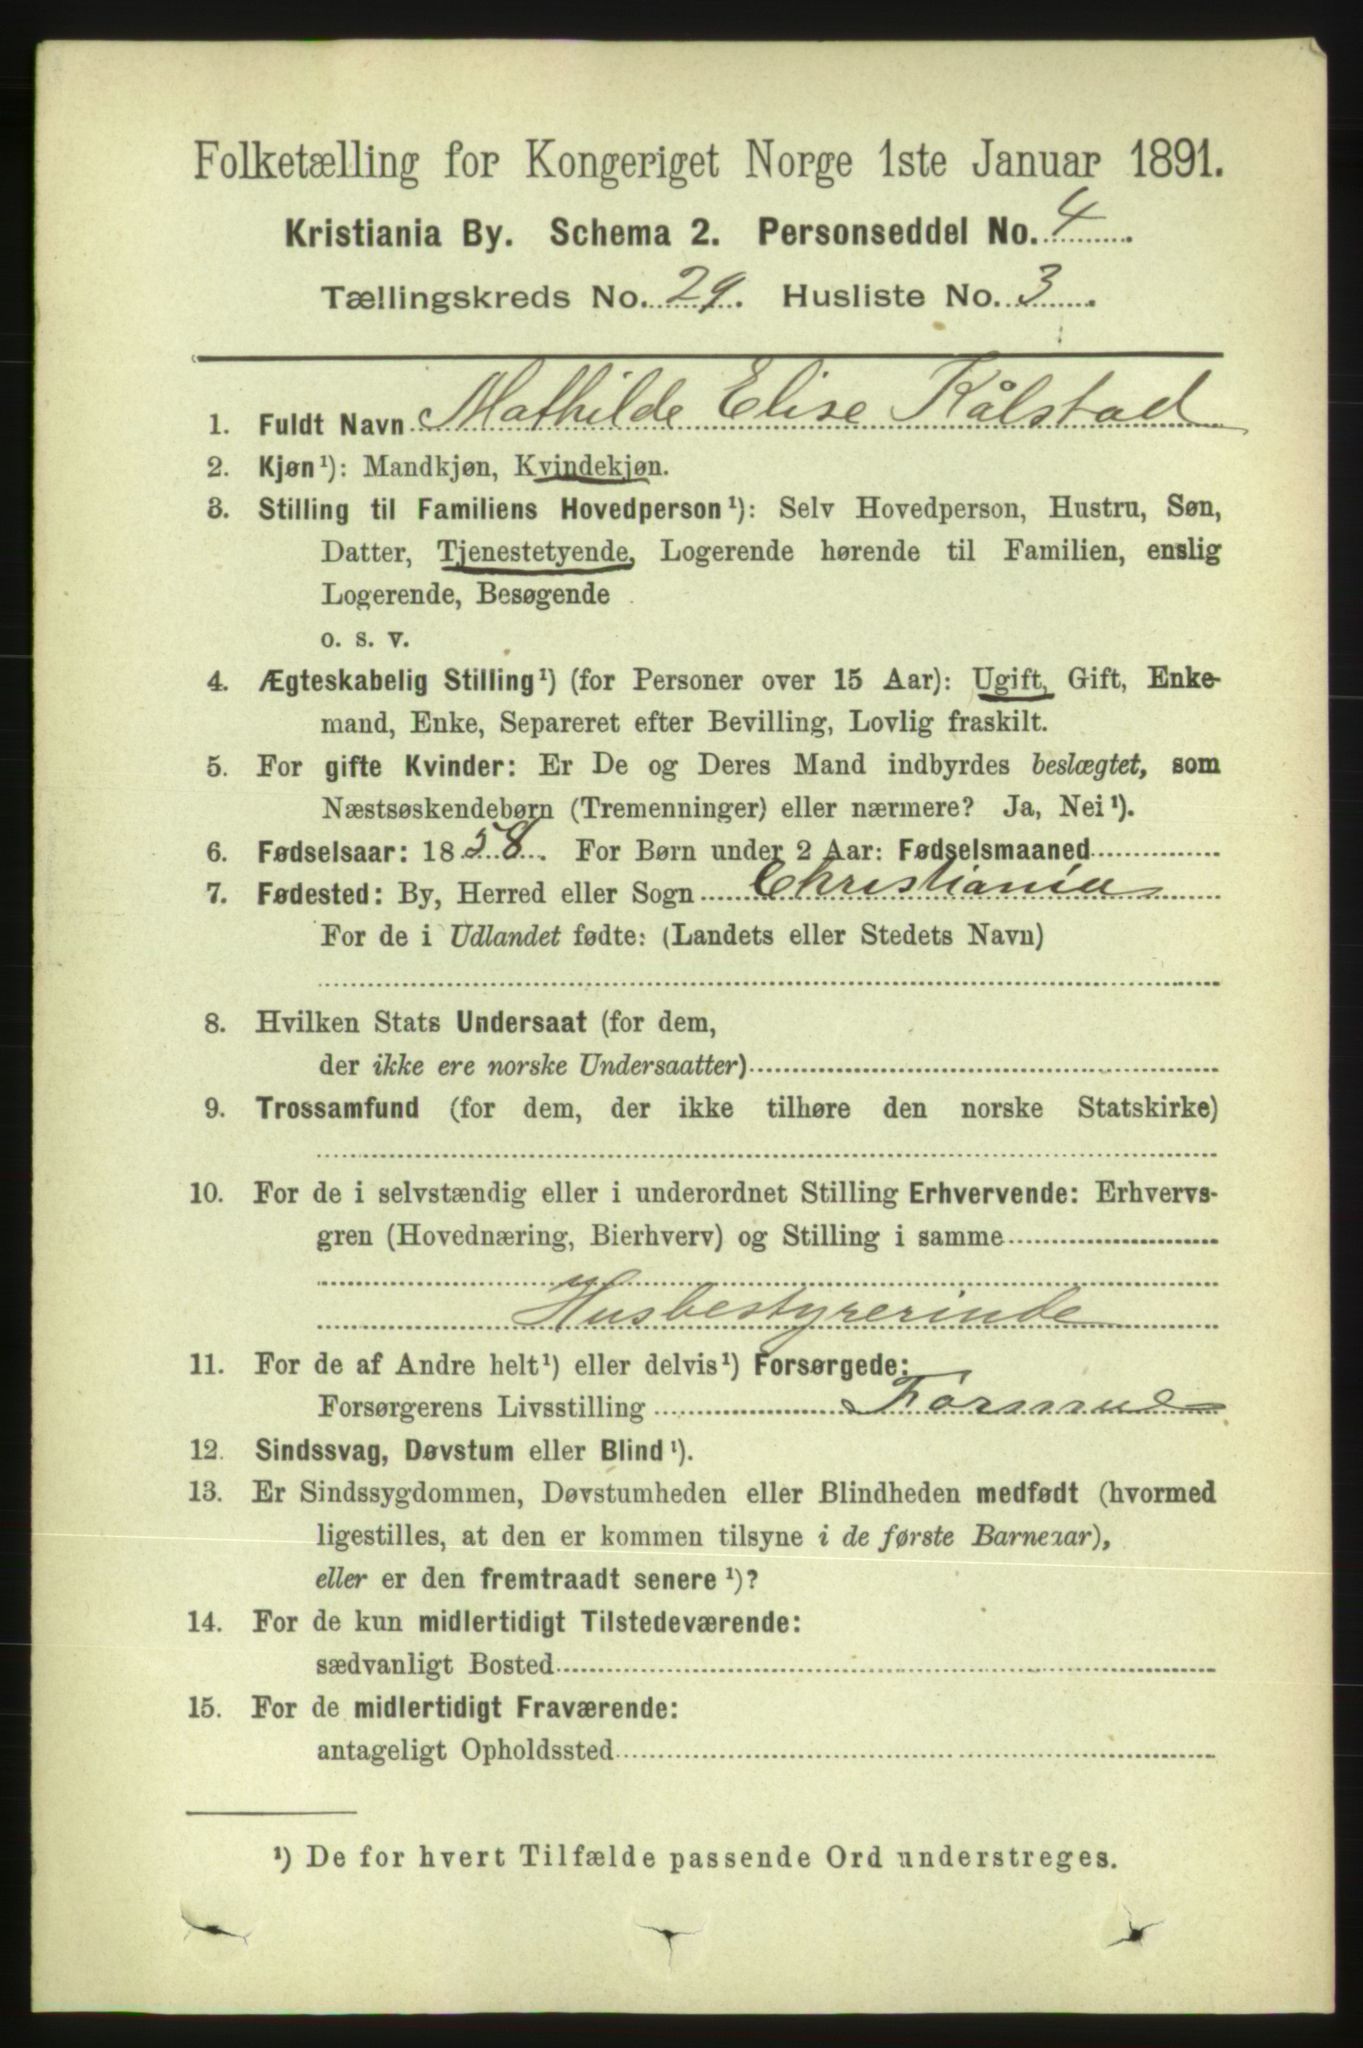 Folketælling for Kongeriget Norge 1ste Januar 1891.
Kristiania By. Schema 2. Personseddel No. 4
Tællingskreds No. 29. Husliste No. 3
1. Fuldt Navn Mathilde Elise Kålstad
2. Kjøn¹): Mandkjøn, Kvindekjøn.
3. Stilling til Familiens Hovedperson¹): Selv Hovedperson, Hustru, Søn,
Datter, Tjenestetyende, Logerende hørende til Familien, enslig
Logerende, Besøgende
o. s. v.
4. Ægteskabelig Stilling¹) (for Personer over 15 Aar): Ugift, Gift, Enke-
mand, Enke, Separeret efter Bevilling, Lovlig fraskilt.
5. For gifte Kvinder: Er De og Deres Mand indbyrdes beslægtet, som
Næstsøskendebørn (Tremenninger) eller nærmere? Ja, Nei¹).
6. Fødselsaar: 1858. For Børn under 2 Aar: Fødselsmaaned
7. Fødested: By, Herred eller Sogn Christiania
For de i Udlandet fødte: (Landets eller Stedets Navn)
8. Hvilken Stats Undersaat (for dem,
der ikke ere norske Undersaatter)
9. Trossamfund (for dem, der ikke tilhøre den norske Statskirke)
10. For de i selvstændig eller i underordnet Stilling Erhvervende: Erhvervs-
gren (Hovednæring, Bierhverv) og Stilling i samme
Husbestyrerinde
11. For de af Andre helt¹) eller delvis¹) Forsørgede:
Forsørgerens Livsstilling
12. Sindssvag, Døvstum eller Blind¹).
13. Er Sindssygdommen, Døvstumheden eller Blindheden medfødt (hvormed
ligestilles, at den er kommen tilsyne i de første Barneaar),
eller er den fremtraadt senere¹)?
14. For de kun midlertidigt Tilstedeværende:
sædvanligt Bosted
15. For de midlertidigt Fraværende:
antageligt Opholdssted
¹) De for hvert Tilfælde passende Ord understreges.